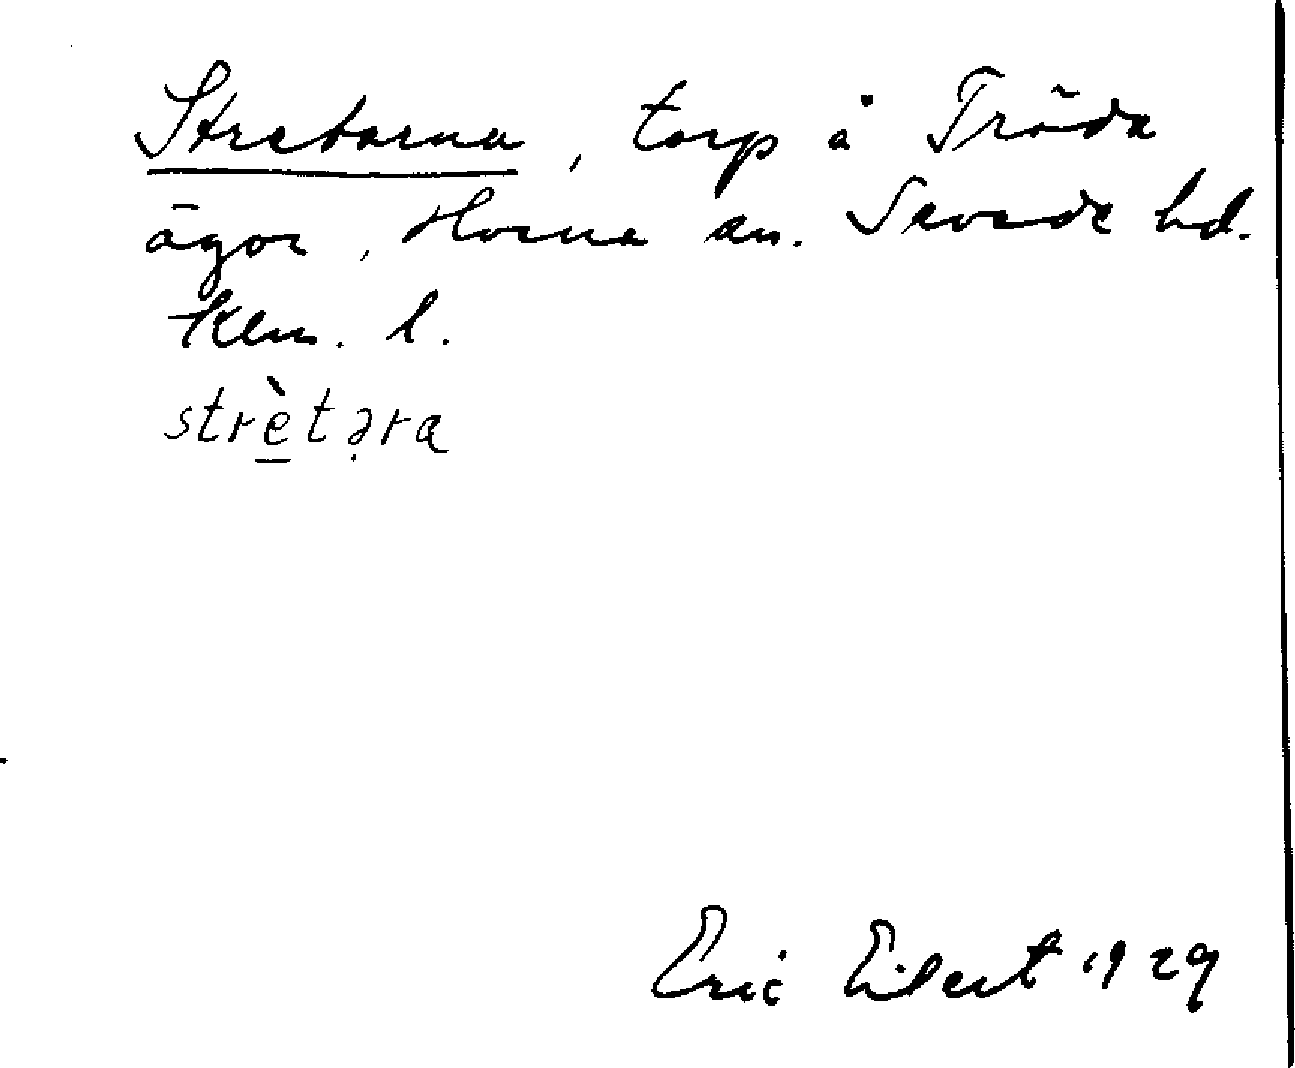 Stretorna, torp å Tröda
ägor, Horna sn. Sevede hd.
Klm. l.
strètəra
Eric Eilert 1929